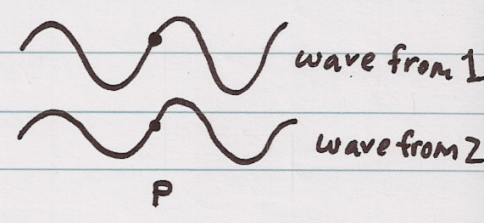 wave from 1
wave from 2
P